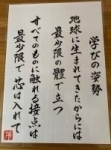 学びの姿勢
地球に生まれてきたからには
最少限の體で立つ
すべてのものに触れる接点は
最少限で心は入れて